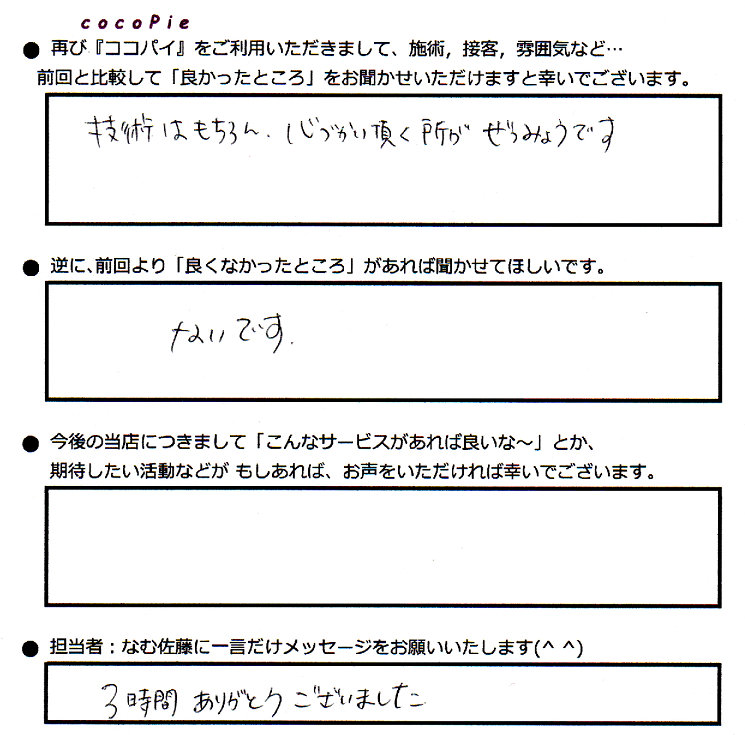 cocoPie
● 再び『ココパイ』をご利用いただきまして、施術，接客，雰囲気など…
前回と比較して「良かったところ」をお聞かせいただけますと幸いでございます。
技術はもちろん、心づかい頂く所がぜつみょうです
● 逆に、前回より「良くなかったところ」があれば聞かせてほしいです。
ないです.
● 今後の当店につきまして「こんなサービスがあれば良いな～」とか、
期待したい活動などが もしあれば、お声をいただければ幸いでございます。
● 担当者：なむ佐藤に一言だけメッセージをお願いいたします(^ ^)
3時間 ありがとうございました